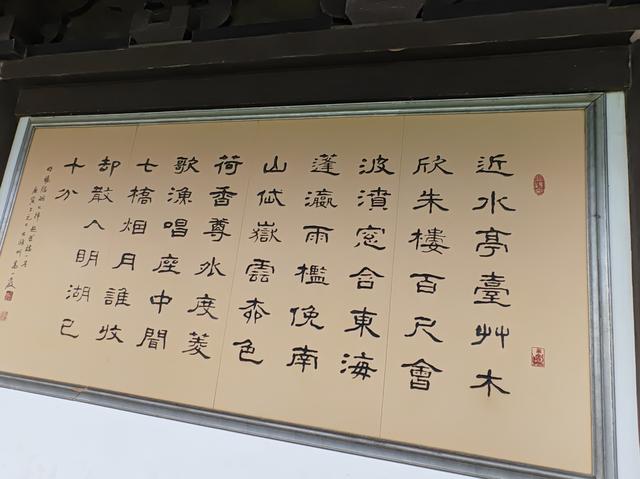 近水亭臺艸木
欣朱樓百尺會
波濆窓含東海
蓬瀛雨檻俛南
山岱嶽雲桺色
荷香尊外度菱
歌漁唱座中聞
七橋烟月誰收
却散入明湖已
十分